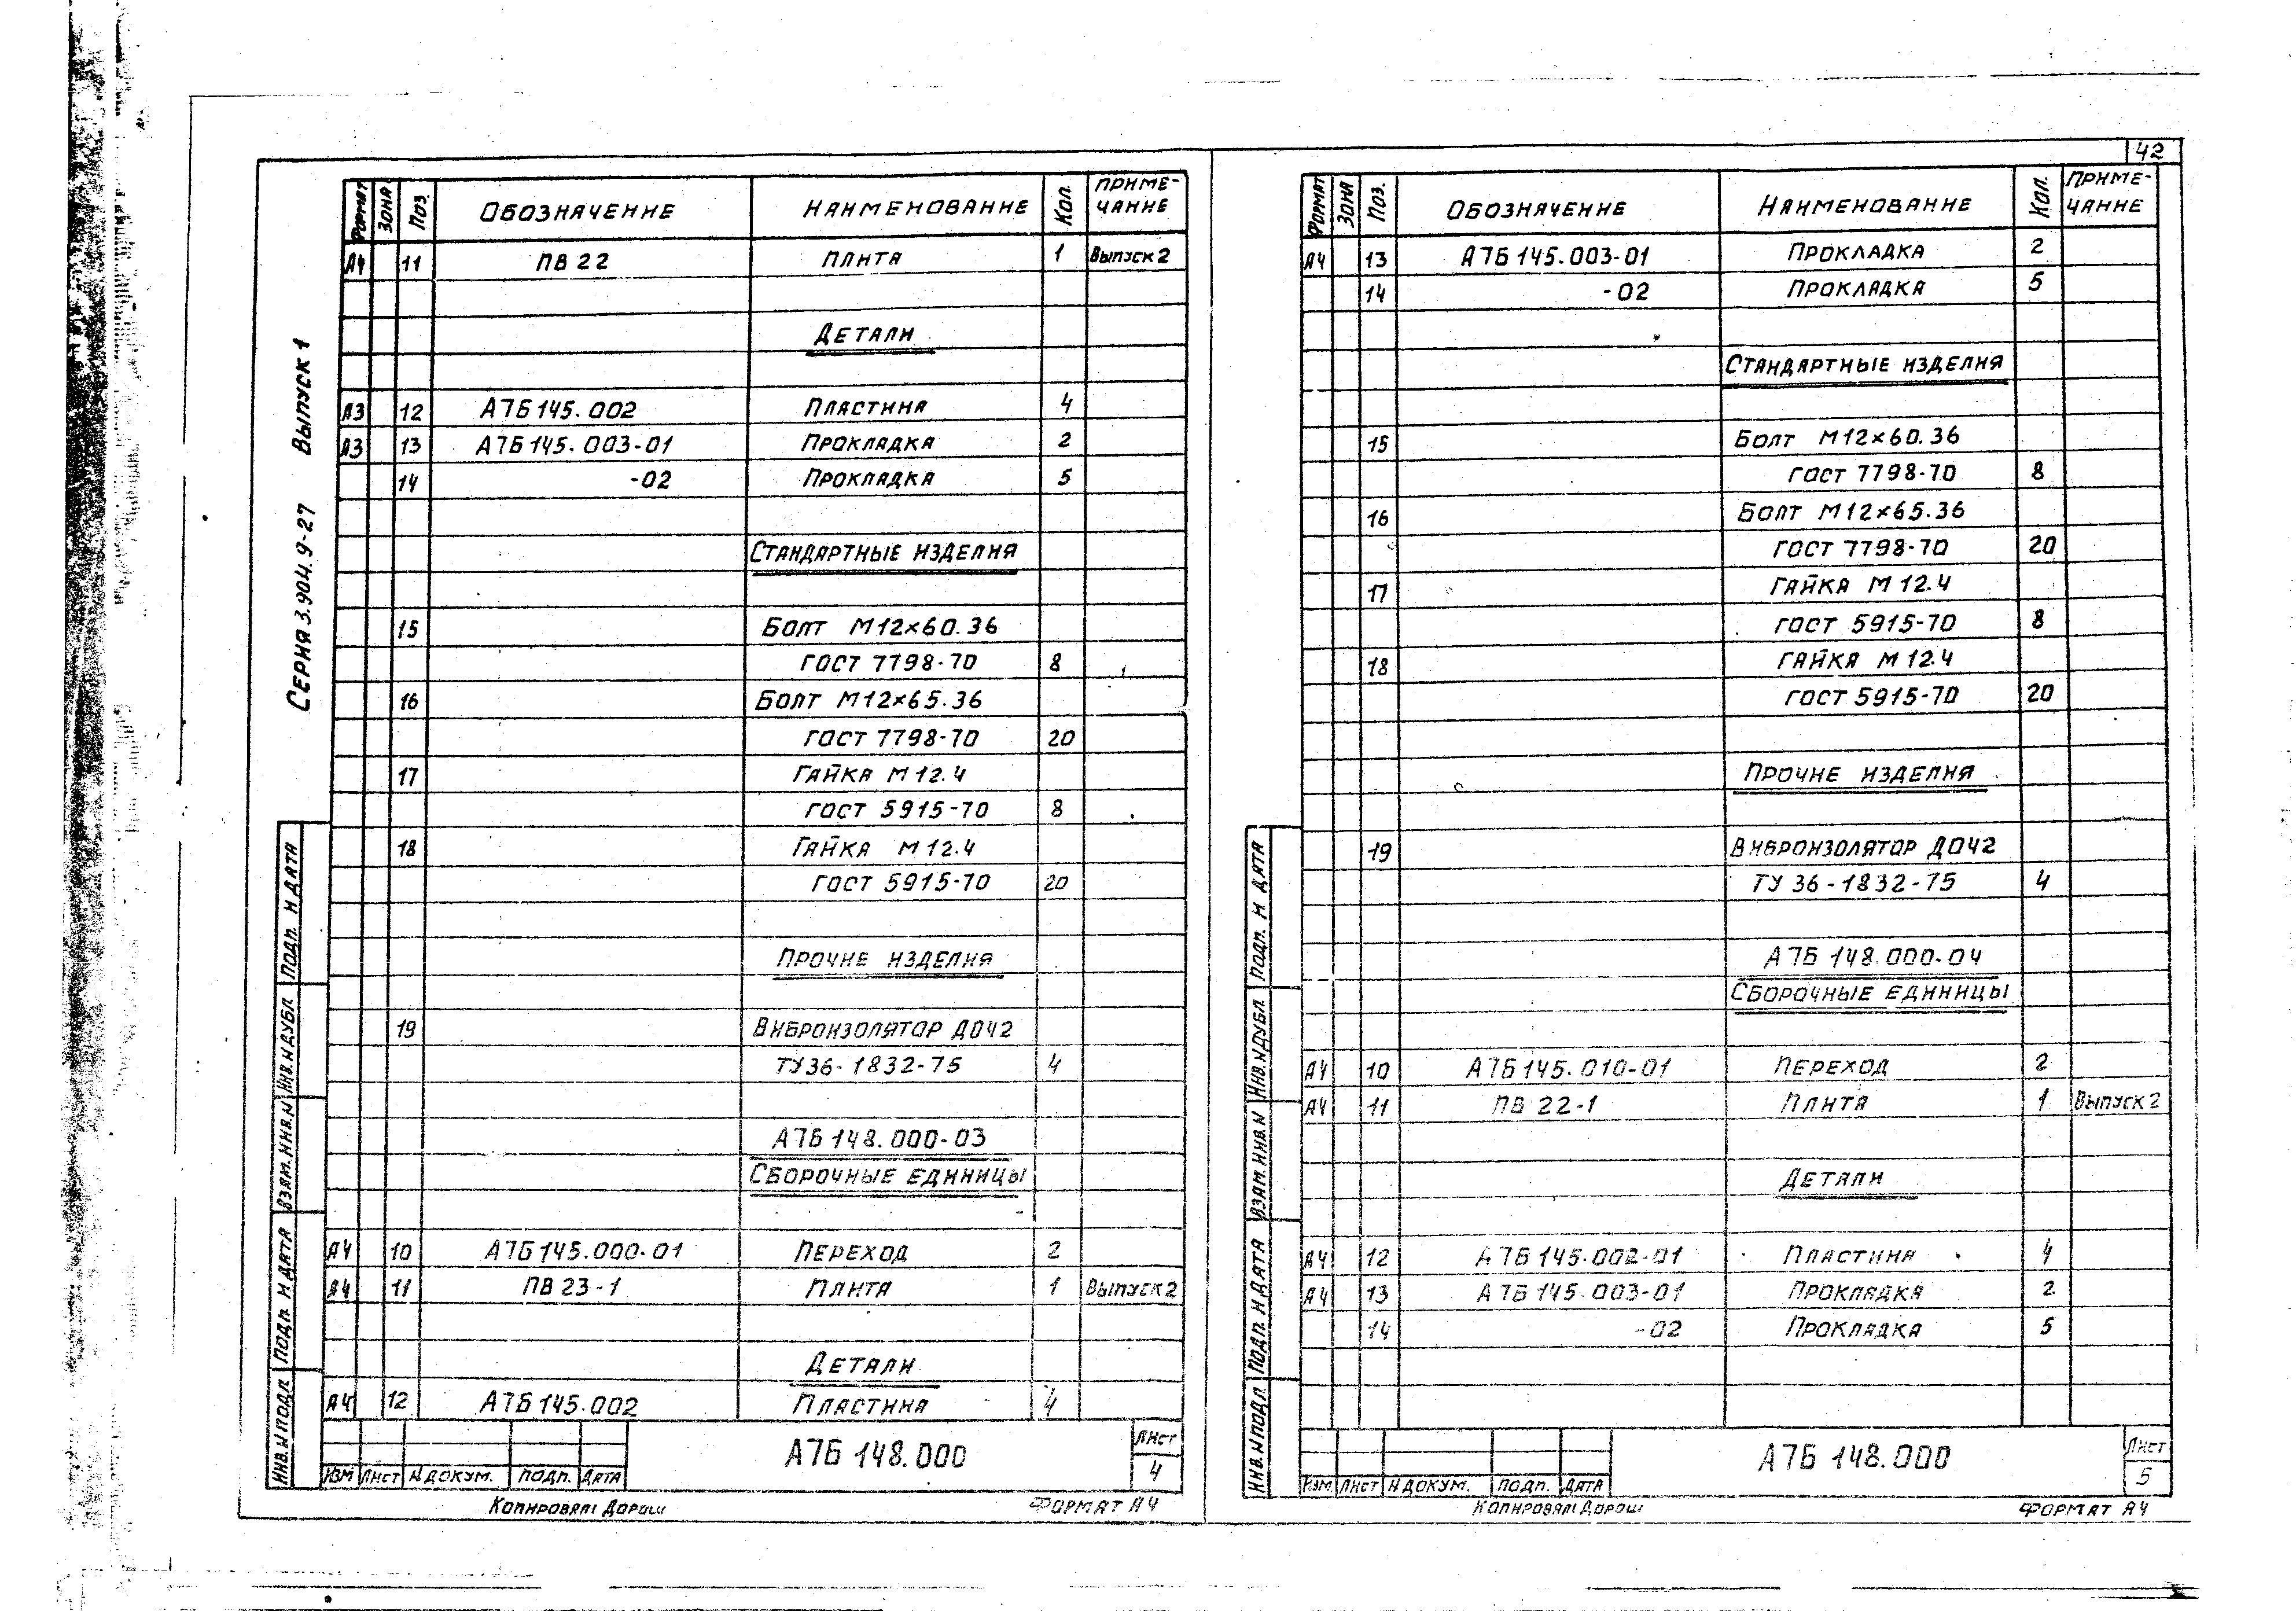 42
Серия 3.904.9-27 Выпуск 1
Формат Зона Поз. Обозначение Наименование Кол. Примечание
А4 11 ПВ 22 Плита 1 Выпуск 2
Детали
А3 12 А7Б 145.002 Пластина 4
А3 13 А7Б 145.003-01 Прокладка 2
14 -02 Прокладка 5
Стандартные изделия
15 Болт М12×60.36
ГОСТ 7798-70 8
16 Болт М12×65.36
ГОСТ 7798-70 20
17 Гайка М12.4
ГОСТ 5915-70 8
18 Гайка М12.4
ГОСТ 5915-70 20
Прочие изделия
19 Виброизолятор ДО42
ТУ36-1832-75 4
А7Б 148.000-03
Сборочные единицы
А4 10 А7Б 145.000-01 Переход 2
А4 11 ПВ 23-1 Плита 1 Выпуск 2
Детали
А4 12 А7Б 145.002 Пластина 4
Инв.N подл. Подп. и дата Взам.инв.N Инв.N дубл. Подп. и дата
Изм Лист N докум. Подп. Дата
А7Б 148.000
Лист
4
Копировал: Дорош
Формат А4
Формат Зона Поз. Обозначение Наименование Кол. Примечание
А4 13 А7Б 145.003-01 Прокладка 2
14 -02 Прокладка 5
Стандартные изделия
15 Болт М12×60.36
ГОСТ 7798-70 8
16 Болт М12×65.36
ГОСТ 7798-70 20
17 Гайка М12.4
ГОСТ 5915-70 8
18 Гайка М12.4
ГОСТ 5915-70 20
Прочие изделия
19 Виброизолятор ДО42
ТУ 36-1832-75 4
А7Б 148.000-04
Сборочные единицы
А4 10 А7Б 145.010-01 Переход 2
А4 11 ПВ 22-1 Плита 1 Выпуск 2
Детали
А4 12 А7Б 145.002-01 Пластина 4
А4 13 А7Б 145.003-01 Прокладка 2
14 -02 Прокладка 5
Инв.N подл. Подп. и дата Взам.инв.N Инв.N дубл. Подп. и дата
Изм Лист N докум. Подп. Дата
А7Б 148.000
Лист
5
Копировал: Дорош
Формат А4